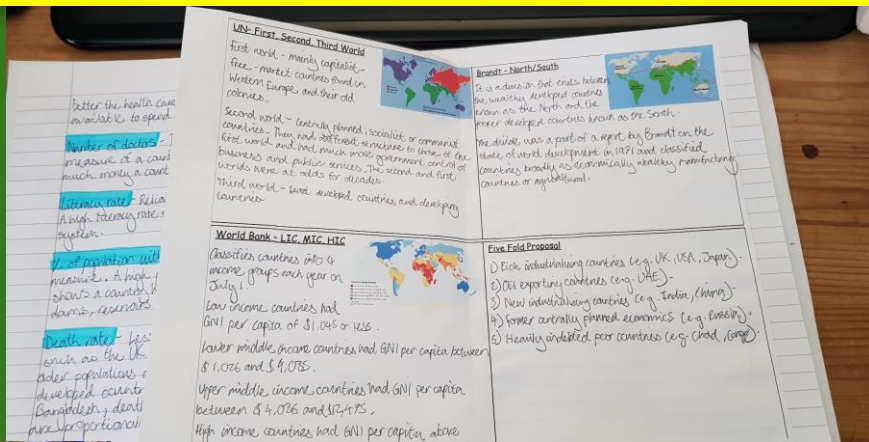 better the health care
available to spend
Number of doctors -
measure of a count
much money a count
Literacy rate - Relia
A high literacy rate
system.
% of population with
measure. A high
shows a country
dams, reservoirs
Death rate - Les
such as the UK
older populations
developed countr
Bangladesh, death
are proportional
UN- First, Second, Third World
First world - mainly capitalist -
free-market countries found in
Western Europe and their old
colonies.
Second world - centrally planned, socialist or communist
countries. They had different structure to those of the
first world and had much more government control of
business and public services. The second and first
worlds were at odds for decades.
Third world - least developed countries and developing
countries
Brandt - North/South
It is a division that exists between
the wealthy developed countries
known as the North and the
poorer developed countries known as the South.
The divide was a part of a report by Brandt on the
state of world development in 1971 and classified
countries broadly as economically wealthy manufacturing
countries or agricultural.
World Bank - LIC, MIC, HIC
Classifies countries into 4
income groups each year on
July 1.
Low income countries had
GNI per capita of $1,045 or less.
Lower middle income countries had GNI per capita between
$1,026 and $4,035.
Upper middle income countries had GNI per capita
between $4,036 and $12,475.
High income countries had GNI per capita above
Five Fold Proposal
1) Rich industrialising countries (e.g. UK, USA, Japan).
2) Oil exporting countries (e.g. UAE).
3) New industrialising countries (e.g. India, China).
4) Former centrally planned economies (e.g. Russia).
5) Heavily indebted poor countries (e.g. Chad, Congo).